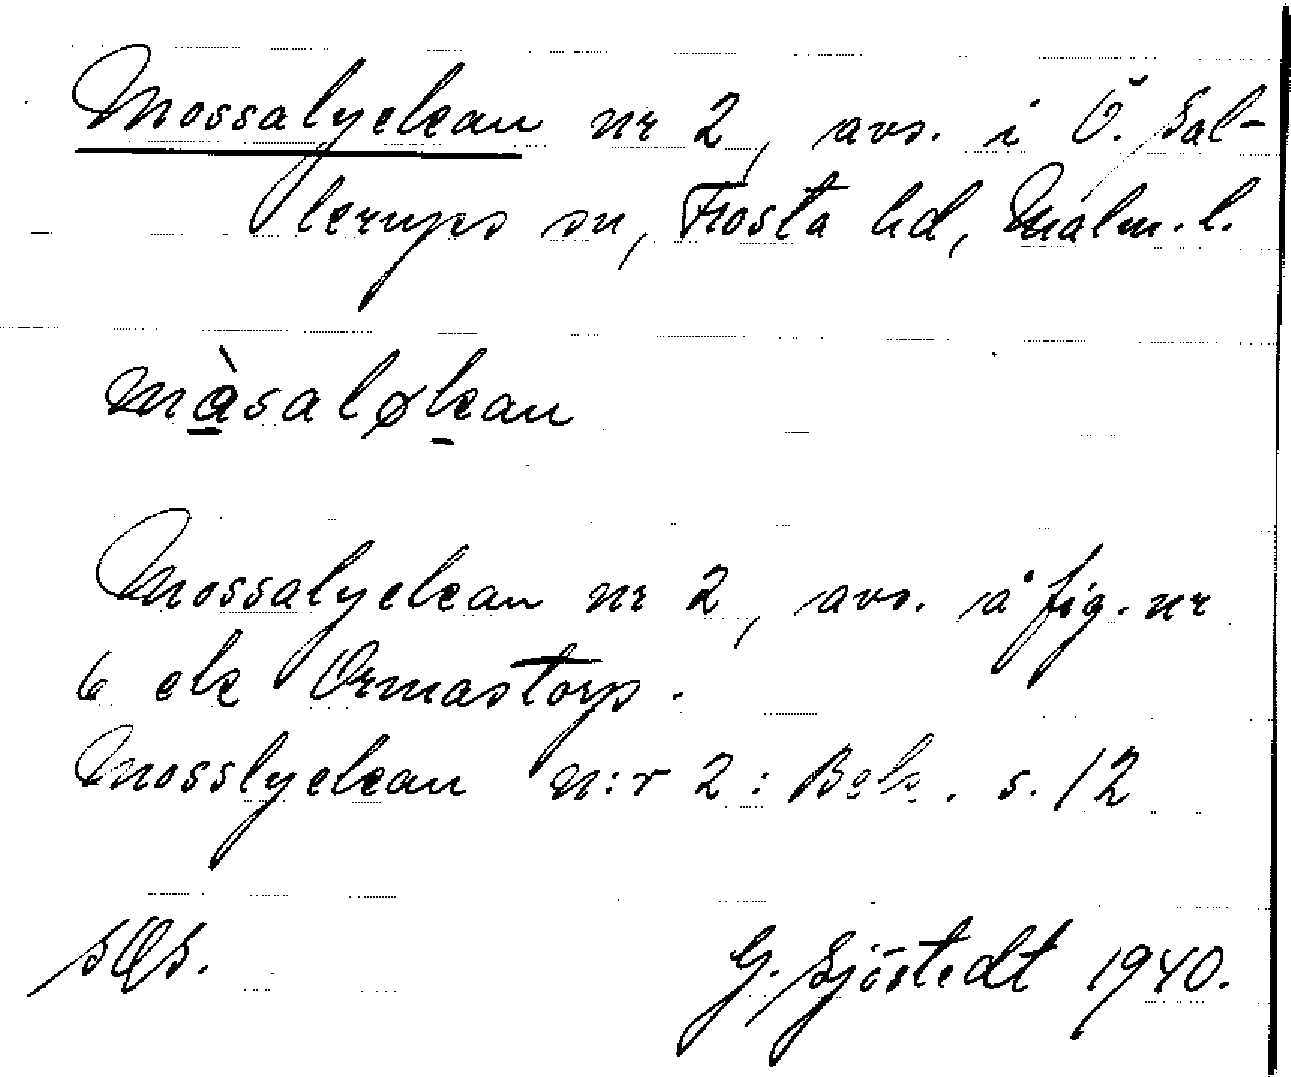 Mossalyckan nr 2, avs. i Ö. Sal-
lerups sn, Frosta hd, Malm. l.
màsaløkan
Mossalyckan nr 2, avs. å fig. nr
6 ek Ormastorp.
Mosslyckan n:r 2: Bek. s. 12
G. Sjöstedt 1940.